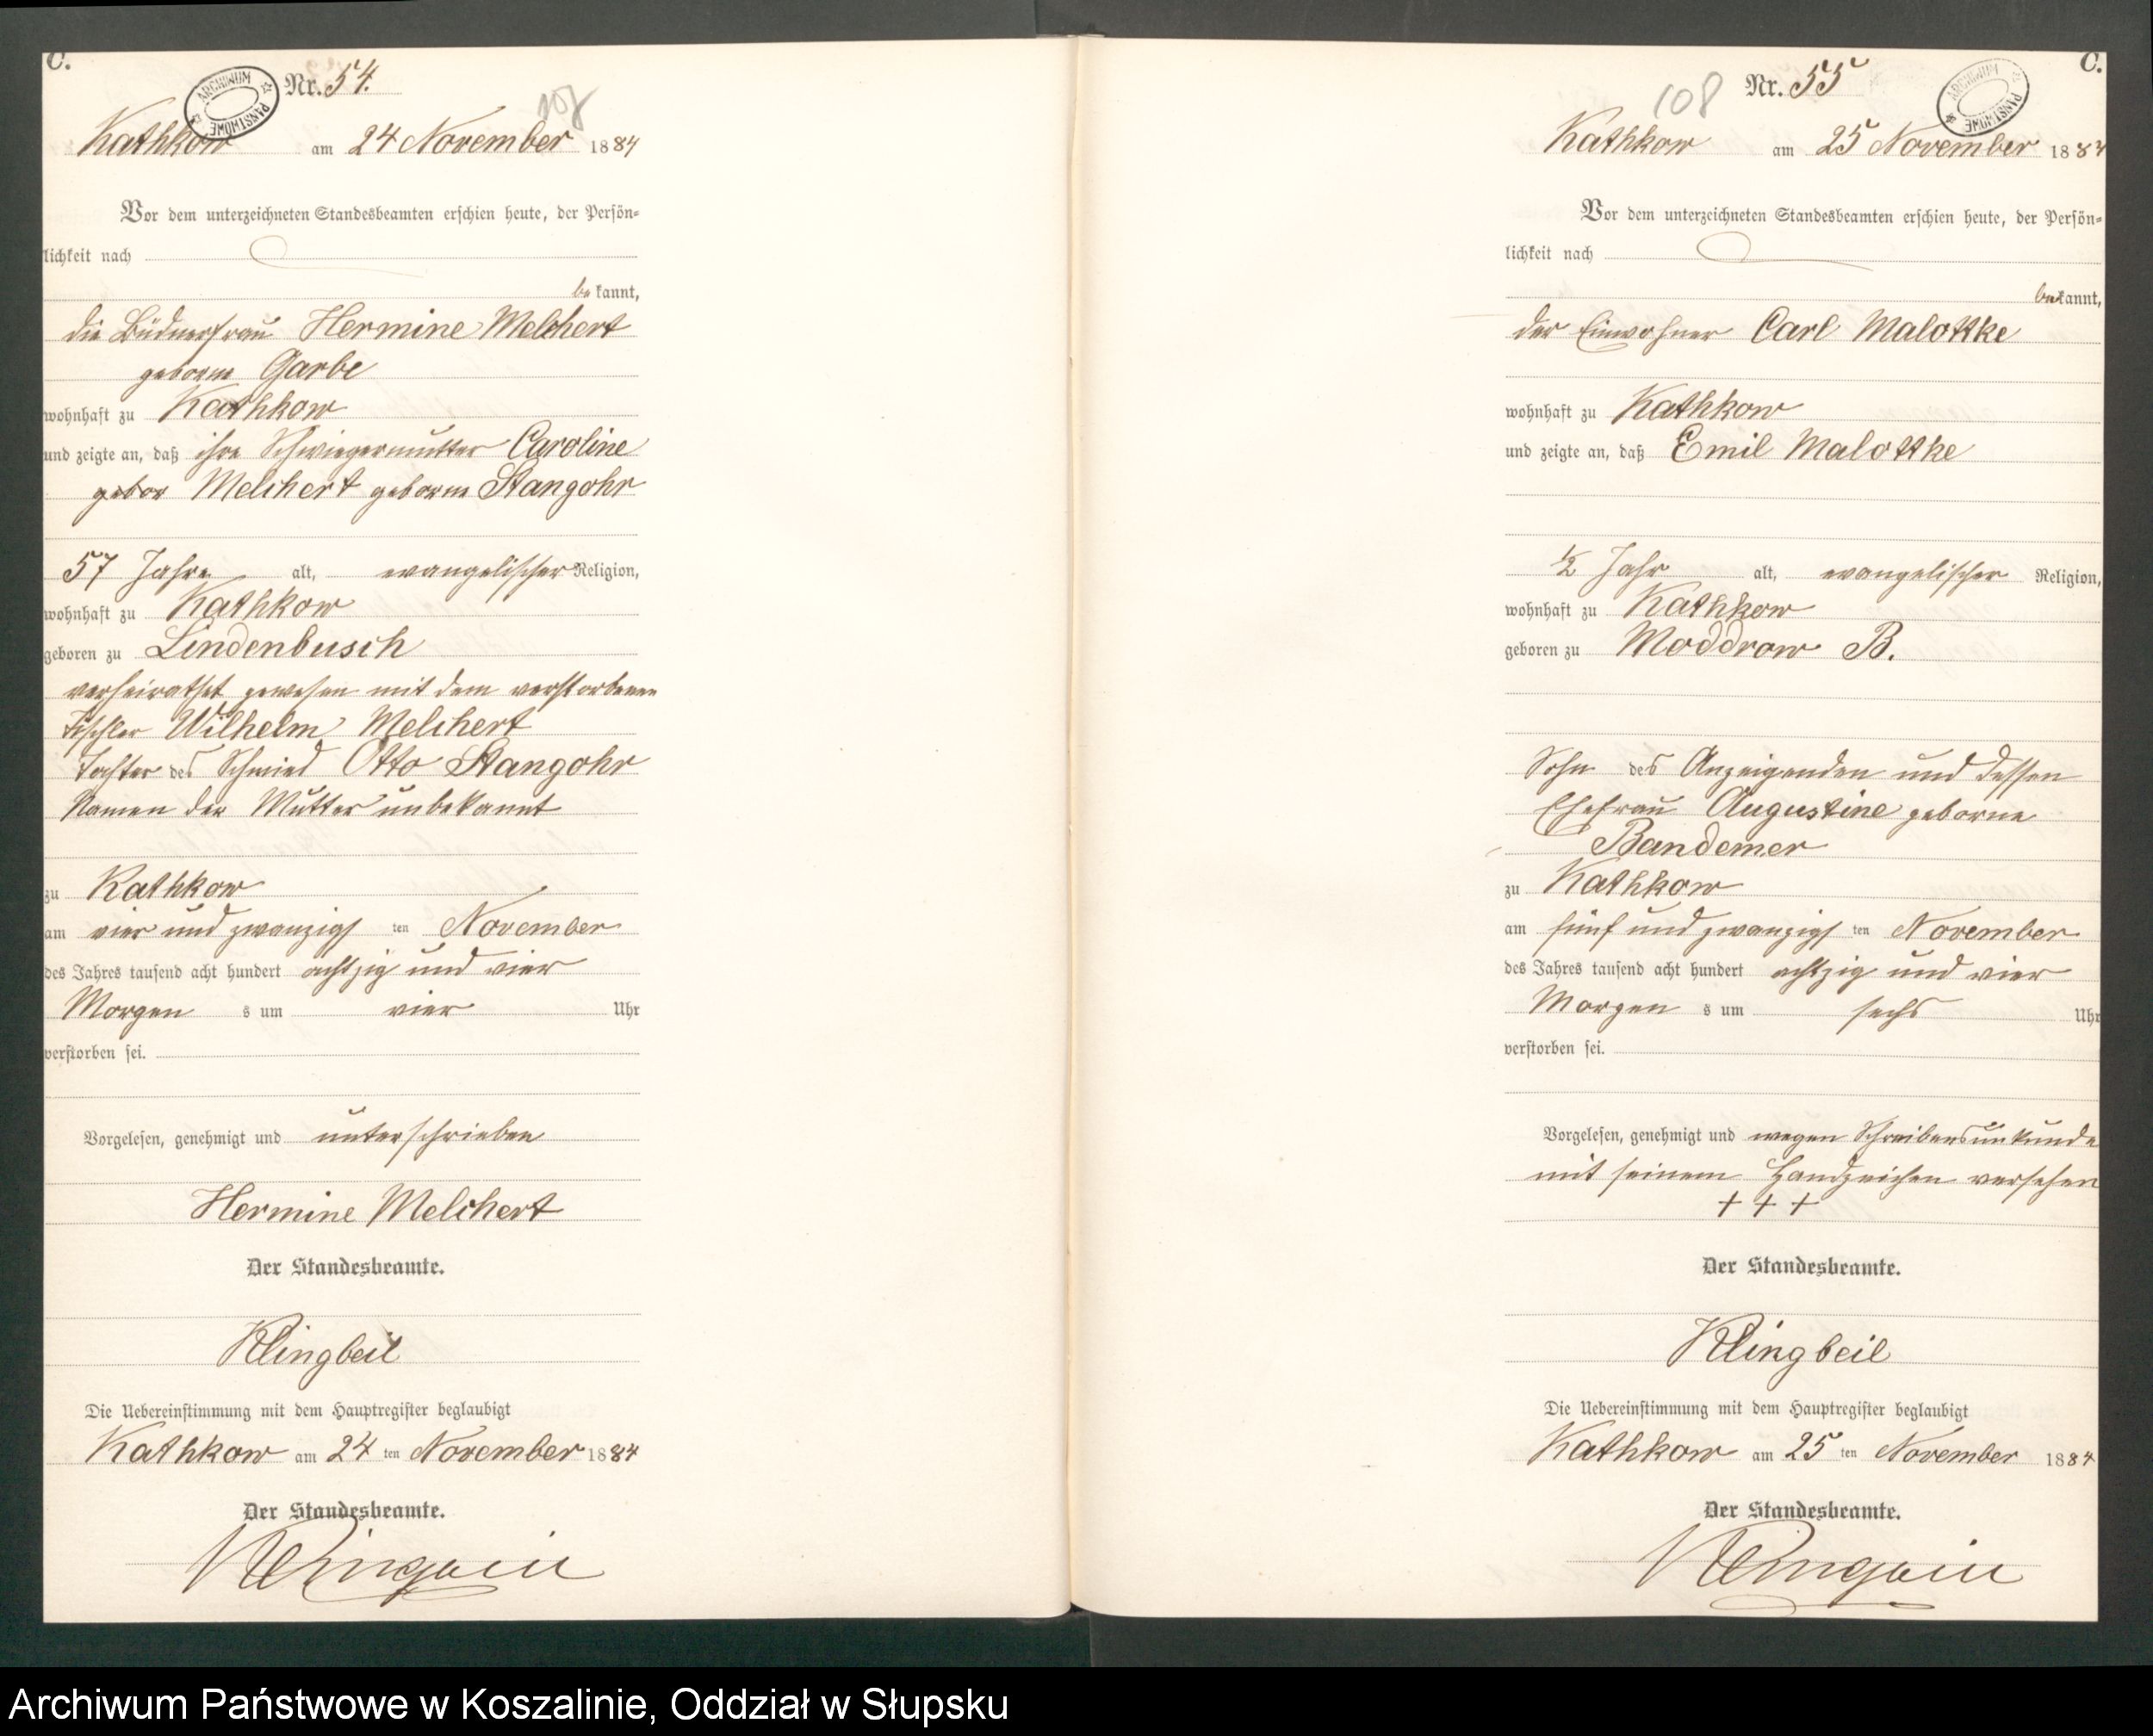 C.
Nr. 54.
ARCHIWUM PAŃSTWOWE
108
Kathkow am 24 November 1884
Vor dem unterzeichneten Standesbeamten erschien heute, der Persön-
lichkeit nach
be kannt,
die Büdnerfrau Hermine Melchert
geborne Garbe
wohnhaft zu Kathkow
und zeigte an, daß ihre Schwiegermutter Caroline
gebor Melchert geborne Stangohr
57 Jahre alt, evangelischer Religion,
wohnhaft zu Kathkow
geboren zu Lindenbusch
verheirathet gewesen mit dem verstorbenen
Tischler Wilhelm Melchert
Tochter des Schmied Otto Stangohr
Namen der Mutter unbekannt
zu Kathkow
am vier und zwanzigs ten November
des Jahres tausend acht hundert achtzig und vier
Morgen s um vier Uhr
verstorben sei.
Vorgelesen, genehmigt und unterschrieben
Hermine Melchert
Der Standesbeamte.
Klingbeil
Die Uebereinstimmung mit dem Hauptregister beglaubigt
Kathkow am 24 ten November 1884
Der Standesbeamte.
Klingbeil
C.
Nr. 55
ARCHIWUM PAŃSTWOWE
108
Kathkow am 25 November 1884
Vor dem unterzeichneten Standesbeamten erschien heute, der Persön-
lichkeit nach
be kannt,
der Einwohner Carl Malottke
wohnhaft zu Kathkow
und zeigte an, daß Emil Malottke
1/2 Jahr alt, evangelischer Religion,
wohnhaft zu Kathkow
geboren zu Moddrow B.
Sohn des Anzeigenden und dessen
Ehefrau Augustine geborne
Bandemer
zu Kathkow
am fünf und zwanzigs ten November
des Jahres tausend acht hundert achtzig und vier
Morgen s um sechs Uhr
verstorben sei.
Vorgelesen, genehmigt und wegen Schreibensunkunde
mit seinem Handzeichen versehen
+ + +
Der Standesbeamte.
Klingbeil
Die Uebereinstimmung mit dem Hauptregister beglaubigt
Kathkow am 25 ten November 1884
Der Standesbeamte.
Klingbeil
Archiwum Państwowe w Koszalinie, Oddział w Słupsku